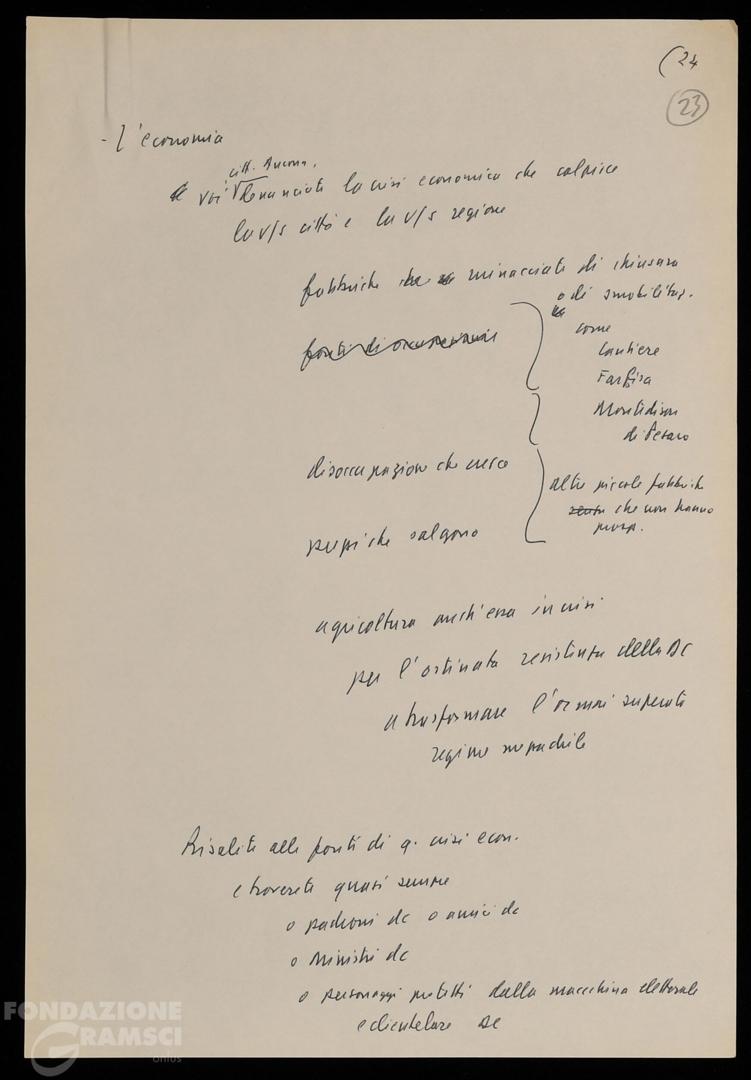 (24
23
- L'economia
citt. Ancona,
Voi denunciate la crisi economica che colpisce
la v/s città e la v/s regione
fabbriche minacciate di chiusura
o di smobilitaz.
come
Cantiere
Farfisa
Montedison
di Pesaro
disoccupazione che cresce
altre piccole fabbriche
senza che non hanno
prosp.
prezzi che salgono
agricoltura anch'essa in crisi
per l'ostinata resistenza della DC
a trasformare l'ormai superato
regime mezzadrile
Risalite alle fonti di q. crisi econ.
e troverete quasi sempre
o padroni dc o amici dc
o Ministri dc
o personaggi protetti dalla macchina elettorale
e clientelare DC
FONDAZIONE
GRAMSCI
onlus